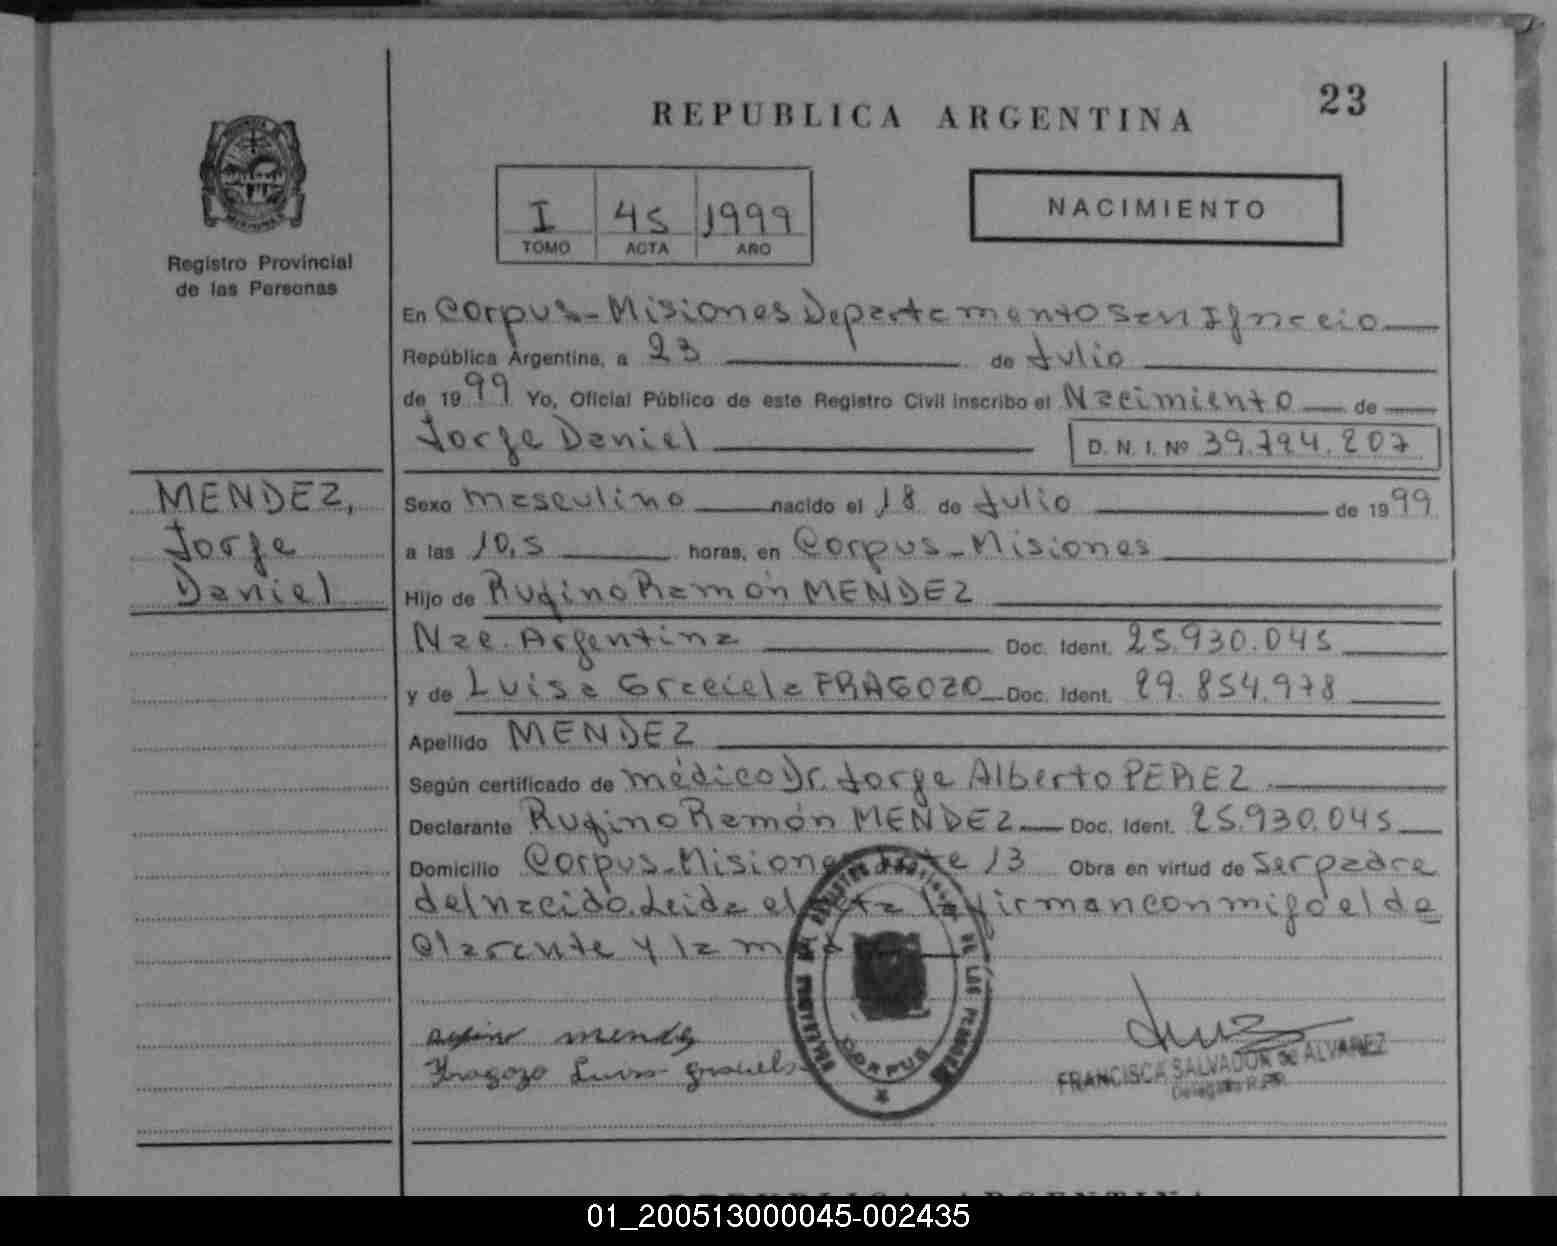 23
REPUBLICA ARGENTINA
I 45 1999
TOMO ACTA AÑO
NACIMIENTO
Registro Provincial
de las Personas
En Corpus-Misiones Departamento San Ignacio
República Argentina, a 23 de Julio
de 1999 Yo, Oficial Público de este Registro Civil inscribo el Nacimiento de
Jorge Daniel D. N. I. Nº 39.794.207
MENDEZ,
Jorge
Daniel
Sexo masculino nacido el 18 de Julio de 1999
a las 10,5 horas, en Corpus-Misiones
Hijo de Rufino Ramón MENDEZ
Nac. Argentina Doc. Ident. 25.930.045
y de Luisa Graciela FRAGOZO Doc. Ident. 29.854.978
Apellido MENDEZ
Según certificado de médico Dr. Jorge Alberto PEREZ
Declarante Rufino Ramón MENDEZ Doc. Ident. 25.930.045
Domicilio Corpus-Misiones 13 Obra en virtud de ser padre
del nacido. Leida el acta la firman conmigo el de
clarante y la
mendez
Fragozo Luisa graciela
CORPUS
FRANCISCA SALVADOR de ALVAREZ
Delegada R.P.P.
REPUBLICA ARGENTINA
01_200513000045-002435